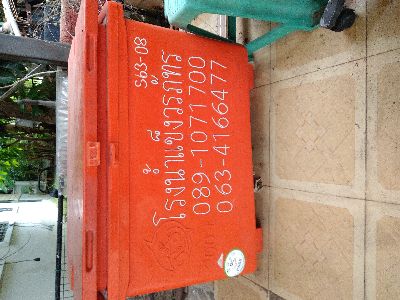 S63-08
โรงน้ำแข็งวรภัทร
089-1071700
063-4166477